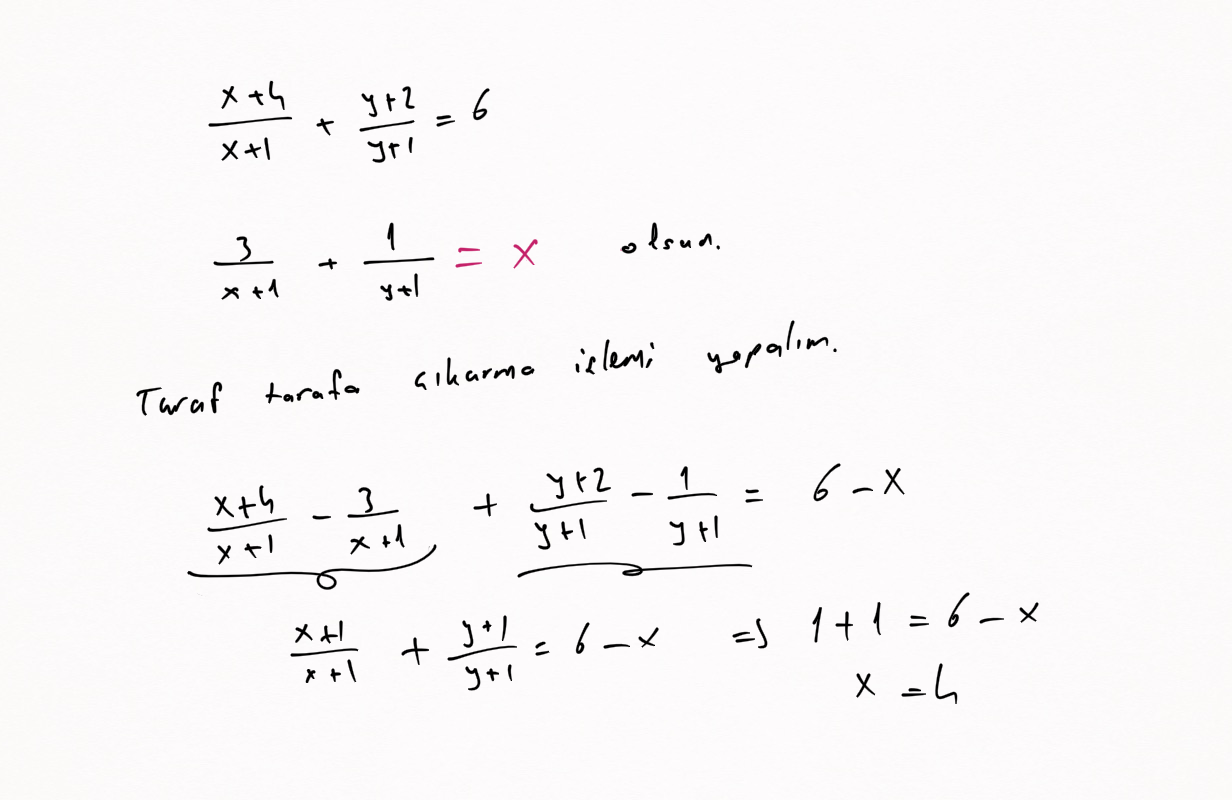 x+4/x+1 + y+2/y+1 = 6
3/x+1 + 1/y+1 = x olsun.
Taraf tarafa çıkarma işlemi yapalım.
x+4/x+1 - 3/x+1 + y+2/y+1 - 1/y+1 = 6-x
x+1/x+1 + y+1/y+1 = 6-x => 1+1 = 6-x
x = 4